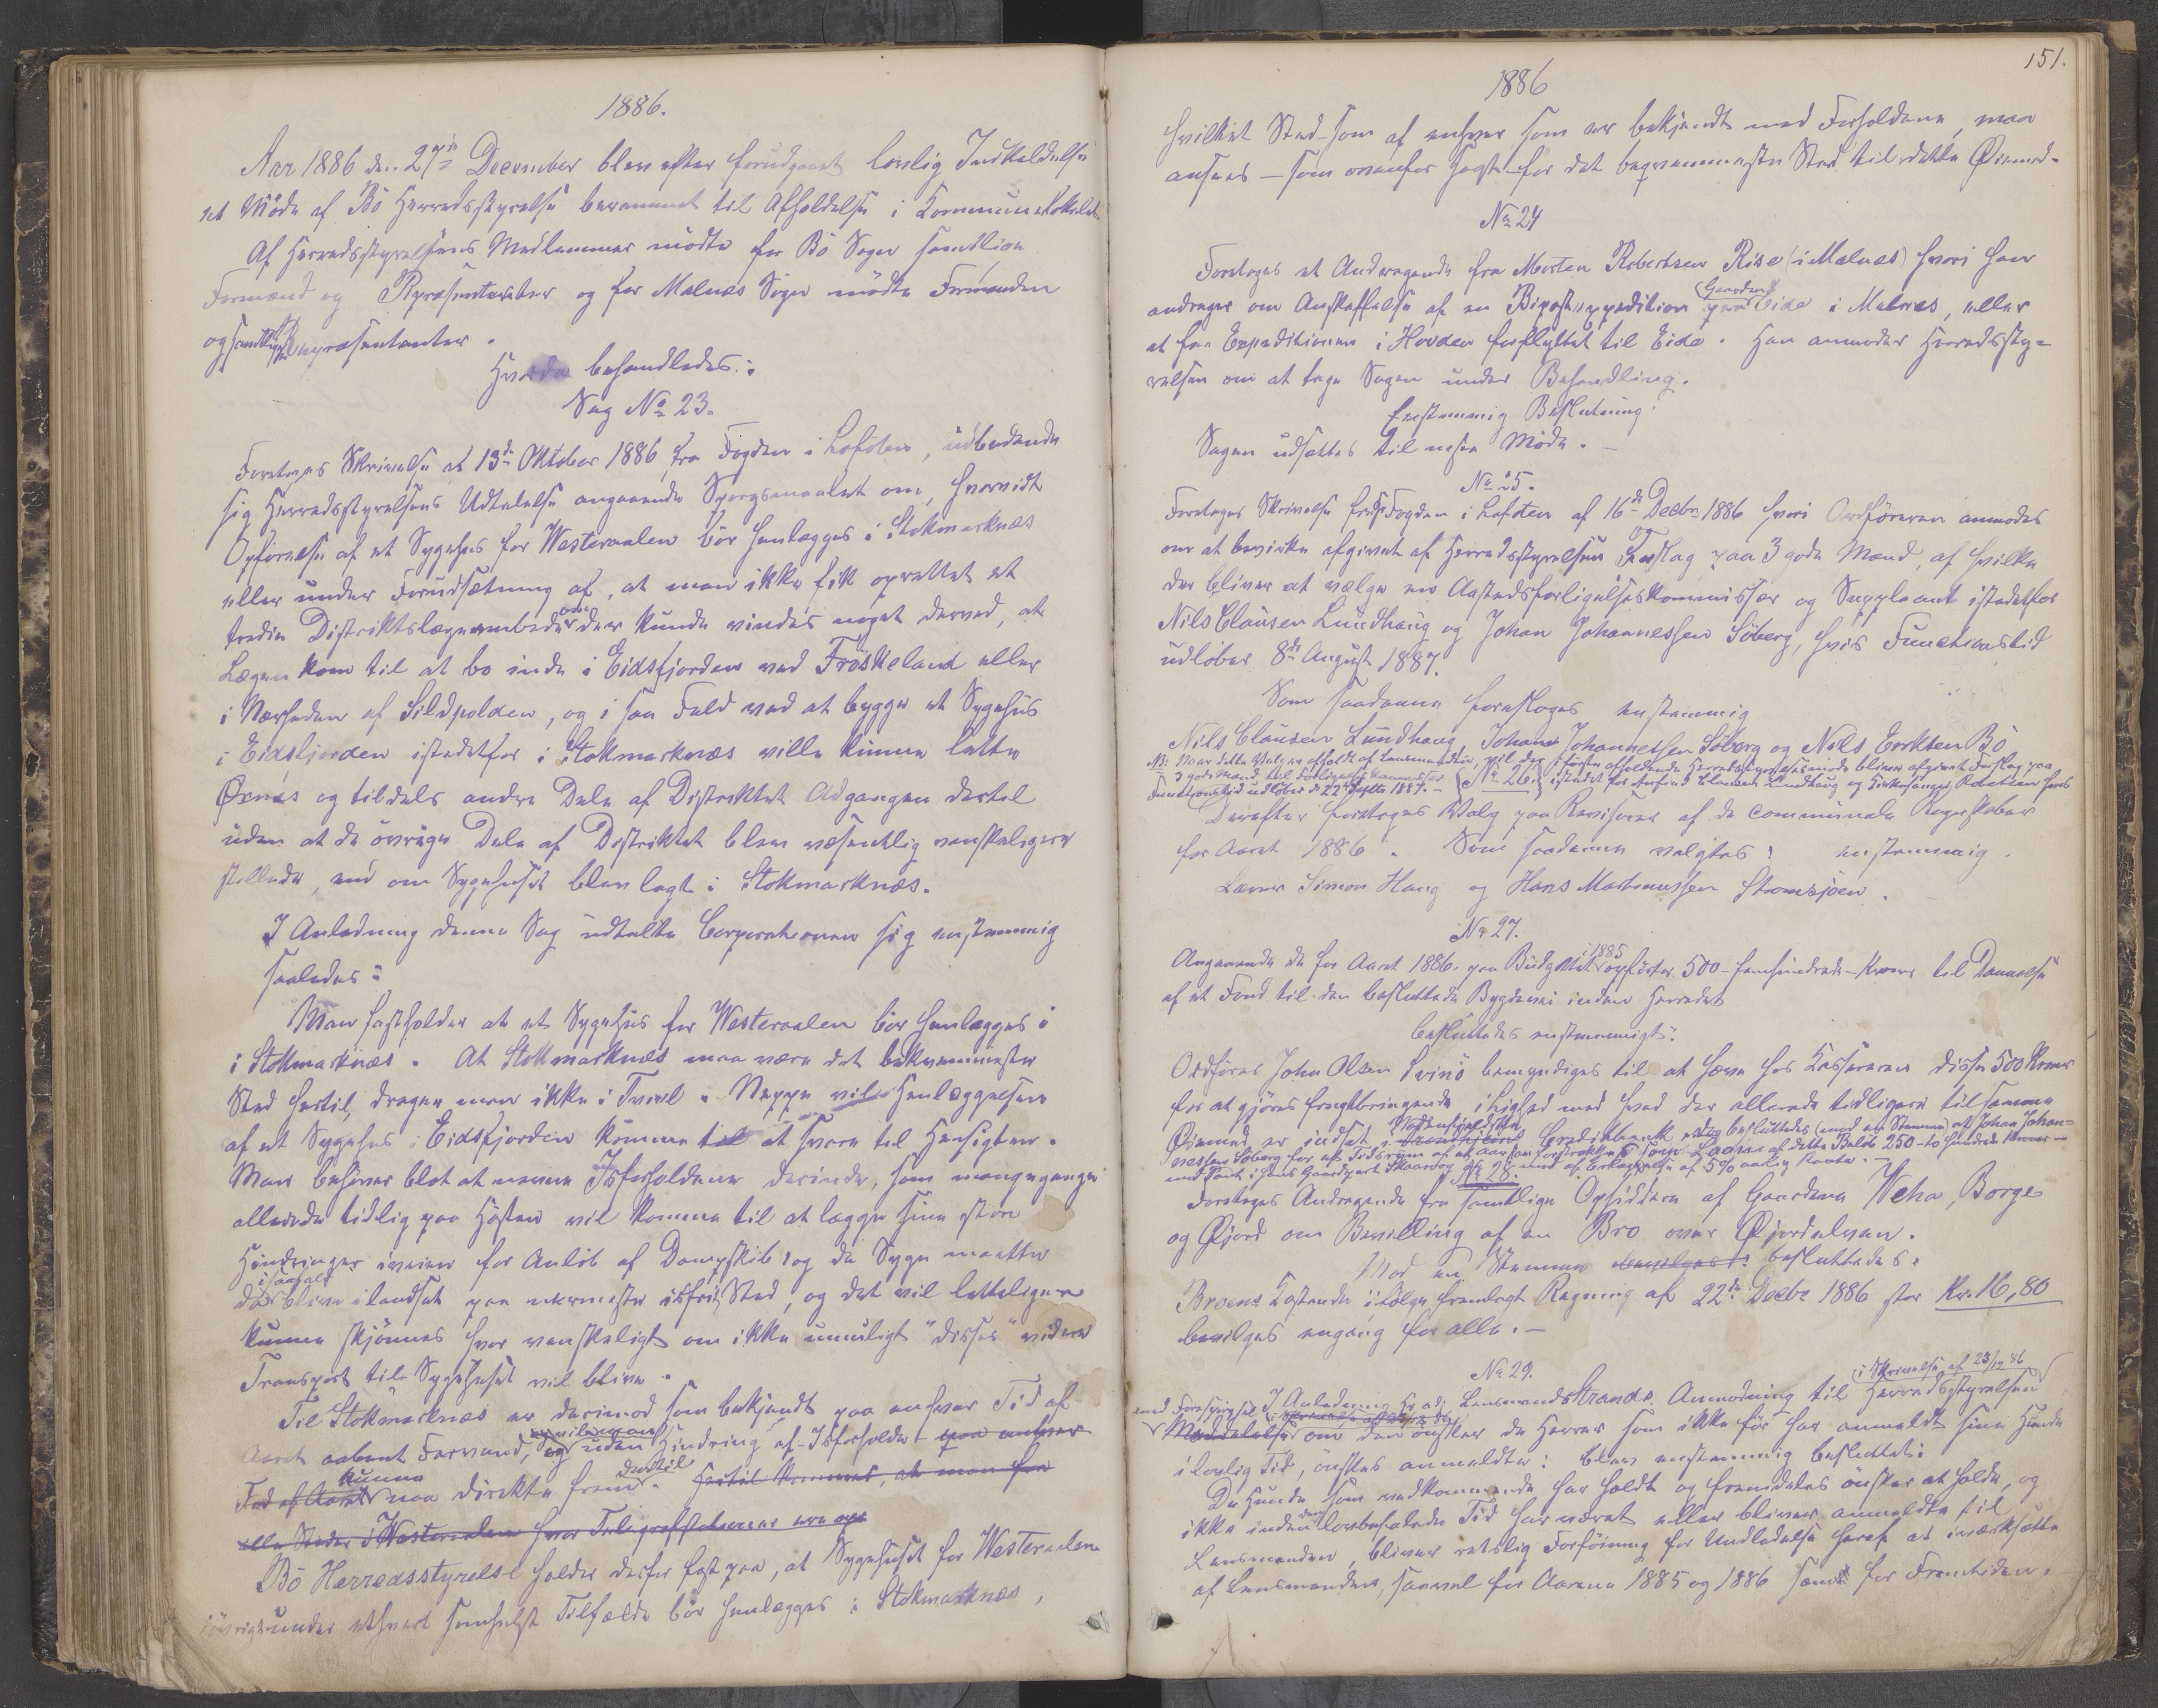 1886.
Aar 1886 den 27de December blev efter forudgaaet lovlig Indkaldelse
et Möde af Bö Herredsstyrelse berammet til Afholdelse i Kommunelokalet
Af Herredsstyrelsens Medlemmer mödte for Bö Sogn samtlige
Formænd og Repræsentanter og for Malnes Sogn mödte Formanden
og samtlige Repræsentanter.
Hvorda behandledes:
Sag No 23.
Foretoges Skrivelse af 13de Oktober 1886 fra Fogden i Lofoten, udbedende
sig Herredsstyrelsens Udtalelse angaaende Spörgsmaalet om, hvorvidt
Opförelse af et Sygehus for Westeraalen bör henlægges i Stokmarknæs
eller under Forudsætning af, at man ikke fik oprettet et
tredie Distriktslægeembede om der kunde vindes noget derved, at
Lægen kom til at bo inde i Eidsfjorden ved Fröskeland eller
i Nærheden af Sildpolden, og i saa Fald ved at bygge et Sygehus
i Eidsfjorden istedetfor i Stokmarknæs ville kunne lette
Öxnes og tildels andre Dele af Distriktet Adgangen dertil
uden at de övrige Dele af Distriktet blev væsentlig vanskeligere
stillede, end om Sygehuset blev lagt i Stokmarknæs.
I Anledning denne Sag udtalte Corporationen sig enstemmig
saaledes:
Man fastholder at et Sygehus for Westeraalen bör henlægges i
i Stokmarknæs. At Stokmarknæs maa være det bekvemmeste
Sted hertil, drager man ikke i Tvivl. Neppe vil Henlæggelsen
af et Sygehus i Eidsfjorden komme til at svare til Hensigten.
Man behöver blot at nævne Isforholdene derinde, som mangegange
allerede tidlig paa Hösten vil komme til at lægge sine store
Hindringer iveien for Anlöb af Dampskibe og de Syge maatte
da i saafald blive ilandsat paa nærmeste isfrie Sted, og det vil letteligen
kunne skjönnes hvor vanskeligt om ikke umuligt "disses" videre
Transport til Sygehuset vil blive.
Til Stokmarknæs er derimod som bekjendt paa enhver Tid af
Aaret aabent Farvand, og vil man uden Hindring af Isforholde paa enhver
Tid af Aaret kunne naa direkte frem dertil. Hertil kommer, at man fra
alle Steder i Westeraalen hvor Telegrafstationer ere op
Bö Herredsstyrelse holder derfor fast paa, at Sygehuset for Westeraalen
iövrigt under ethvert somhelst Tilfælde bör henlægges i Stokmarknæs,
151.
1886
hvilket Sted som af enhver som er bekjendt med Forholdene, maa
ansees – som ovenfor sagt – for det beqvemmeste Sted til dette Öiemed.
No 24
Foretoges et Andragende fra Morten Robertsen Rise (i Malnes) hvori han
andrager om Anskaffelse af en Bipostexpedition paa Gaarden Eide i Malnes, eller
at faa Expeditionen i Hovden forflyttet til Eide. Han anmoder Herredssty-
relsen om at tage Sagen under Behandling.
Enstemmig Beslutning:
Sagen udsættes til neste Möde.
No 25.
Foretoges Skrivelse fra Fogden i Lofoten af 16de Decbr 1886 hvori Ordföreren anmodes
om at bevirke afgivet af Herredsstyrelsen Forslag paa 3 gode Mænd, af hvilke
der bliver at vælge en Aastedsforligelseskommissær og Suppleant istedetfor
Nils Clausen Lundhaug og Johan Johannessen Söberg, hvis Functionstid
udlöber 8de August 1887.
Som saadanne foresloges enstemmig
Nils Clausen Lundhaug, Johan Johannessen Söberg og Nils Eriksen Bö
NB: Naar dette Valg er afholdt af Lensmanden, vil der i förste afholdende Herredsstyrelsesmöde blive afgivet Forslag paa
3 gode Mænd til Forligelseskommissær No 26. istedet for Arefind Clausen Lundhaug og Kirkesanger Robertsen hvis
Functionstid udlöber d 22de Septbr 1887.
Derefter foretoges Valg paa Revisorer af de communale Regnskaber
for Aaret 1886. Som saadanne valgtes: enstemmig
Lærer Simon Haug og Hans Martinussen Straumsjöen.
No 27.
Angaaende de for Aaret 1886 paa Budgettet i 1885 opförte 500 – femhundrede – Kroner til Dannelse
af et Fond til den besluttede Bygdevei inden Herredet
besluttedes enstemmigt:
Ordförer John Olsen Svinö bemyndiges til at hæve hos Kassereren disse 500 Kroner
for at gjöres frugtbringende ilighed med hvad der allerede tidligere til samme
Öiemed er indsat i Trondhjems Nordenfjeldske Creditbank, dog besluttedes (mod en Stemme) at Johan Johan-
nessen Söberg for et Tidsrum af et Aar som Laan af dette Belöb 250 – to hundrede Kroner –
mod Pant i hans Gaardpart Skaarvog No 28. mod af Erlæggelse af 5% aarlig Rente.
Foretoges Andragende fra samtlige Opsiddere af Gaardene Weha, Borge
og Öjord om Bevilling af en Bro over Öjordelven.
Mod en Stemme bevilges besluttedes:
Broens Kostende ifölge fremlagt Regning af 22de Decbr 1886 stor Kr. 16,80
bevilges engang for alle.
No 29.
I Anledning Lensmand Strands Anmodning i Skrivelse af 23/12 86 til Herredsstyrelsen
Meddelelse om den önsker de Herrer som ikke för har anmeldt sine Hunde
ilovlig Tid, önskes anmeldte: blev enstemmig besluttet:
De Hunde som vedkommende har holdt og fremdeles önsker at holde, og
ikke inden den lovbefalede Tid har været eller bliver anmeldte til
Lensmanden, bliver retslig Forföining for Undladelse heraf at iværksætte
af Lensmanden, saavel for Aarene 1885 og 1886 samt for Fremtiden.